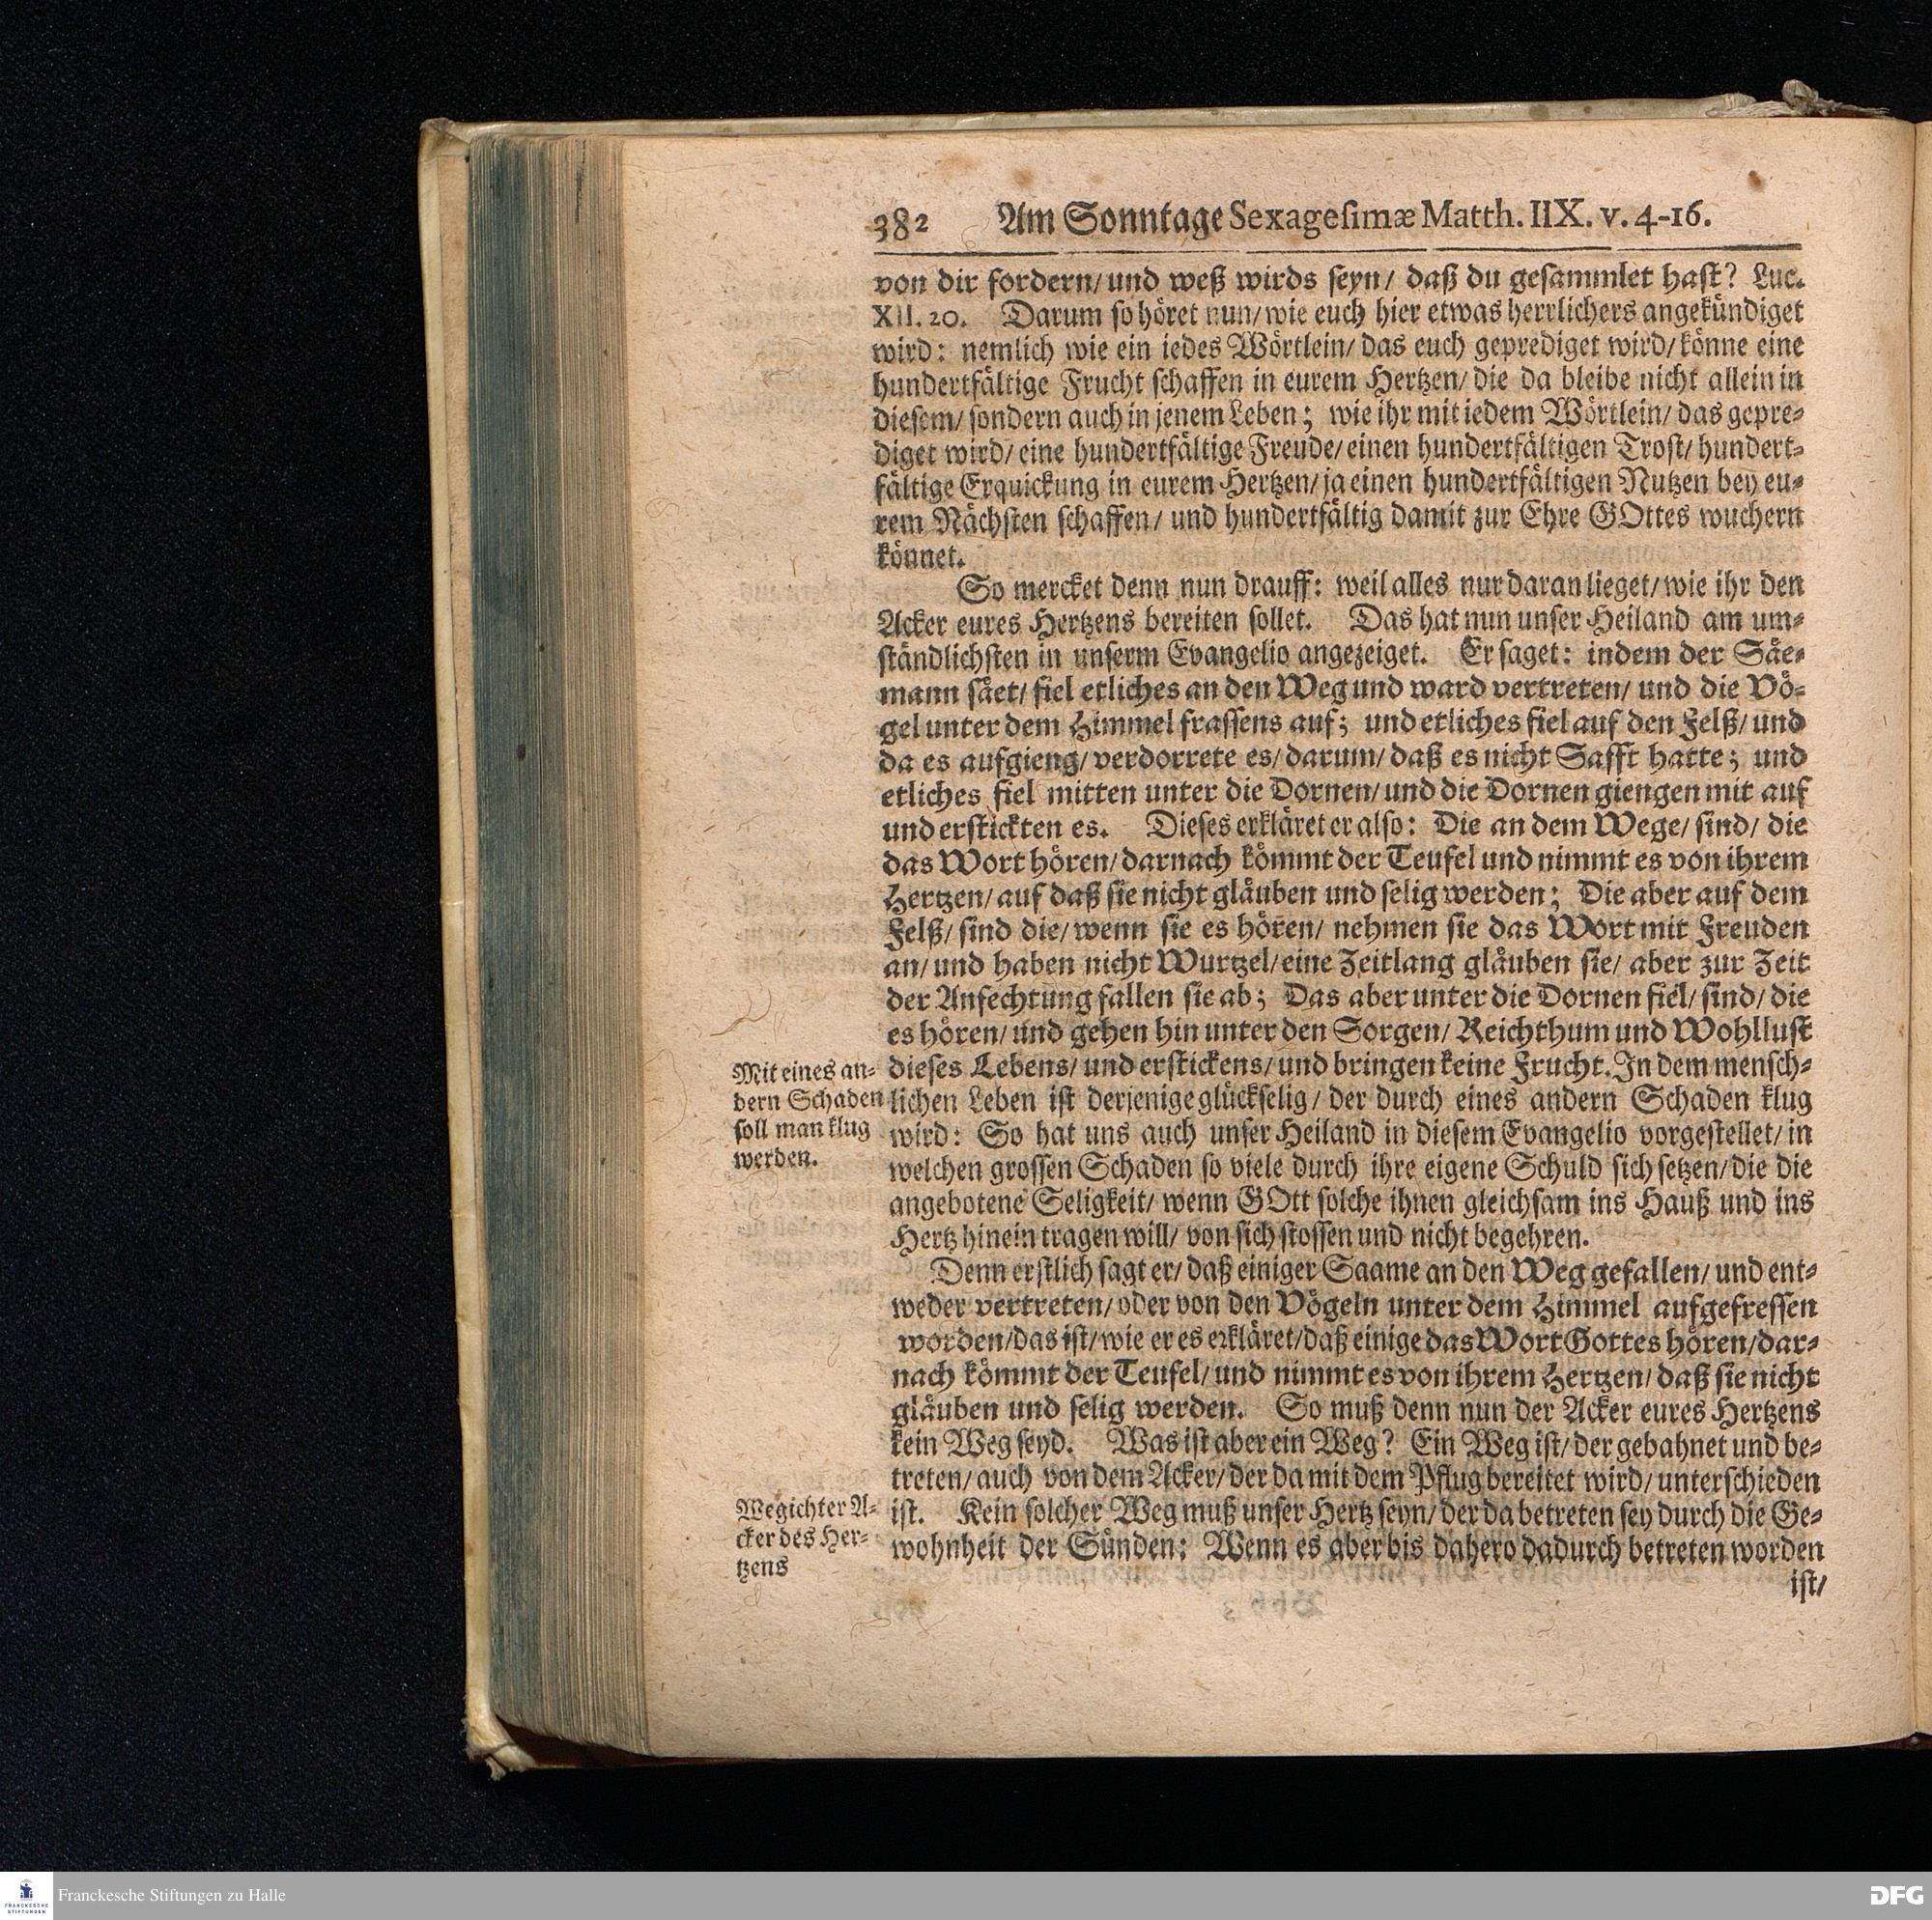 382 Am Sonntage Sexagesimæ Matth. IIX. v. 4-16.
von dir fordern/ und weß wirds seyn/ daß du gesammlet hast? Luc.
XII. 20. Darum so höret nun/ wie euch hier etwas herrlichers angekündiget
wird: nemlich wie ein iedes Wörtlein/ das euch geprediget wird/ könne eine
hundertfältige Frucht schaffen in eurem Hertzen/ die da bleibe nicht allein in
diesem/ sondern auch in jenem Leben; wie ihr mit iedem Wörtlein/ das gepre-
diget wird/ eine hundertfältige Freude/ einen hundertfältigen Trost/ hundert-
fältige Erquickung in eurem Hertzen/ ja einen hundertfältigen Nutzen bey eu-
rem Nächsten schaffen/ und hundertfältig damit zur Ehre GOttes wuchern
könnet.
So mercket denn nun drauff: weil alles nur daran lieget/ wie ihr den
Acker eures Hertzens bereiten sollet. Das hat nun unser Heiland am um-
ständlichsten in unserm Evangelio angezeiget. Er saget: indem der Säe-
mann säet/ fiel etliches an den Weg und ward vertreten/ und die Vö-
gel unter dem Himmel frassens auf; und etliches fiel auf den Felß/ und
da es aufgieng/ verdorrete es/ darum/ daß es nicht Safft hatte; und
etliches fiel mitten unter die Dornen/ und die Dornen giengen mit auf
und erstickten es. Dieses erkläret er also: Die an dem Wege/ sind/ die
das Wort hören/ darnach kömmt der Teufel und nimmt es von ihrem
Hertzen/ auf daß sie nicht gläuben und selig werden; Die aber auf dem
Felß/ sind die/ wenn sie es hören/ nehmen sie das Wort mit Freuden
an/ und haben nicht Wurtzel/ eine Zeitlang gläuben sie/ aber zur Zeit
der Anfechtung fallen sie ab; Das aber unter die Dornen fiel/ sind/ die
es hören/ und gehen hin unter den Sorgen/ Reichthum und Wohllust
dieses Lebens/ und erstickens/ und bringen keine Frucht. In dem mensch-
lichen Leben ist derjenige glückselig/ der durch eines andern Schaden klug
wird: So hat uns auch unser Heiland in diesem Evangelio vorgestellet/ in
welchen grossen Schaden so viele durch ihre eigene Schuld sich setzen/ die die
angebotene Seligkeit/ wenn GOtt solche ihnen gleichsam ins Hauß und ins
Hertz hinein tragen will/ von sich stossen und nicht begehren.
Mit eines an-
dern Schaden
soll man klug
werden.
Denn erstlich sagt er/ daß einiger Saame an den Weg gefallen/ und ent-
weder vertreten/ oder von den Vögeln unter dem Himmel aufgefressen
worden/ das ist/ wie er es erkläret/ daß einige das Wort Gottes hören/ dar-
nach kömmt der Teufel/ und nimmt es von ihrem Hertzen/ daß sie nicht
gläuben und selig werden. So muß denn nun der Acker eures Hertzens
kein Weg seyd. Was ist aber ein Weg? Ein Weg ist/ der gebahnet und be-
treten/ auch von dem Acker/ der da mit dem Pflug bereitet wird/ unterschieden
ist. Kein solcher Weg muß unser Hertz seyn/ der da betreten sey durch die Ge-
wohnheit der Sünden: Wenn es aber bis dahero dadurch betreten worden
Wegichter A-
cker des Her-
tzens
ist/
Franckesche Stiftungen zu Halle
FRANCKESCHE
STIFTUNGEN
DFG